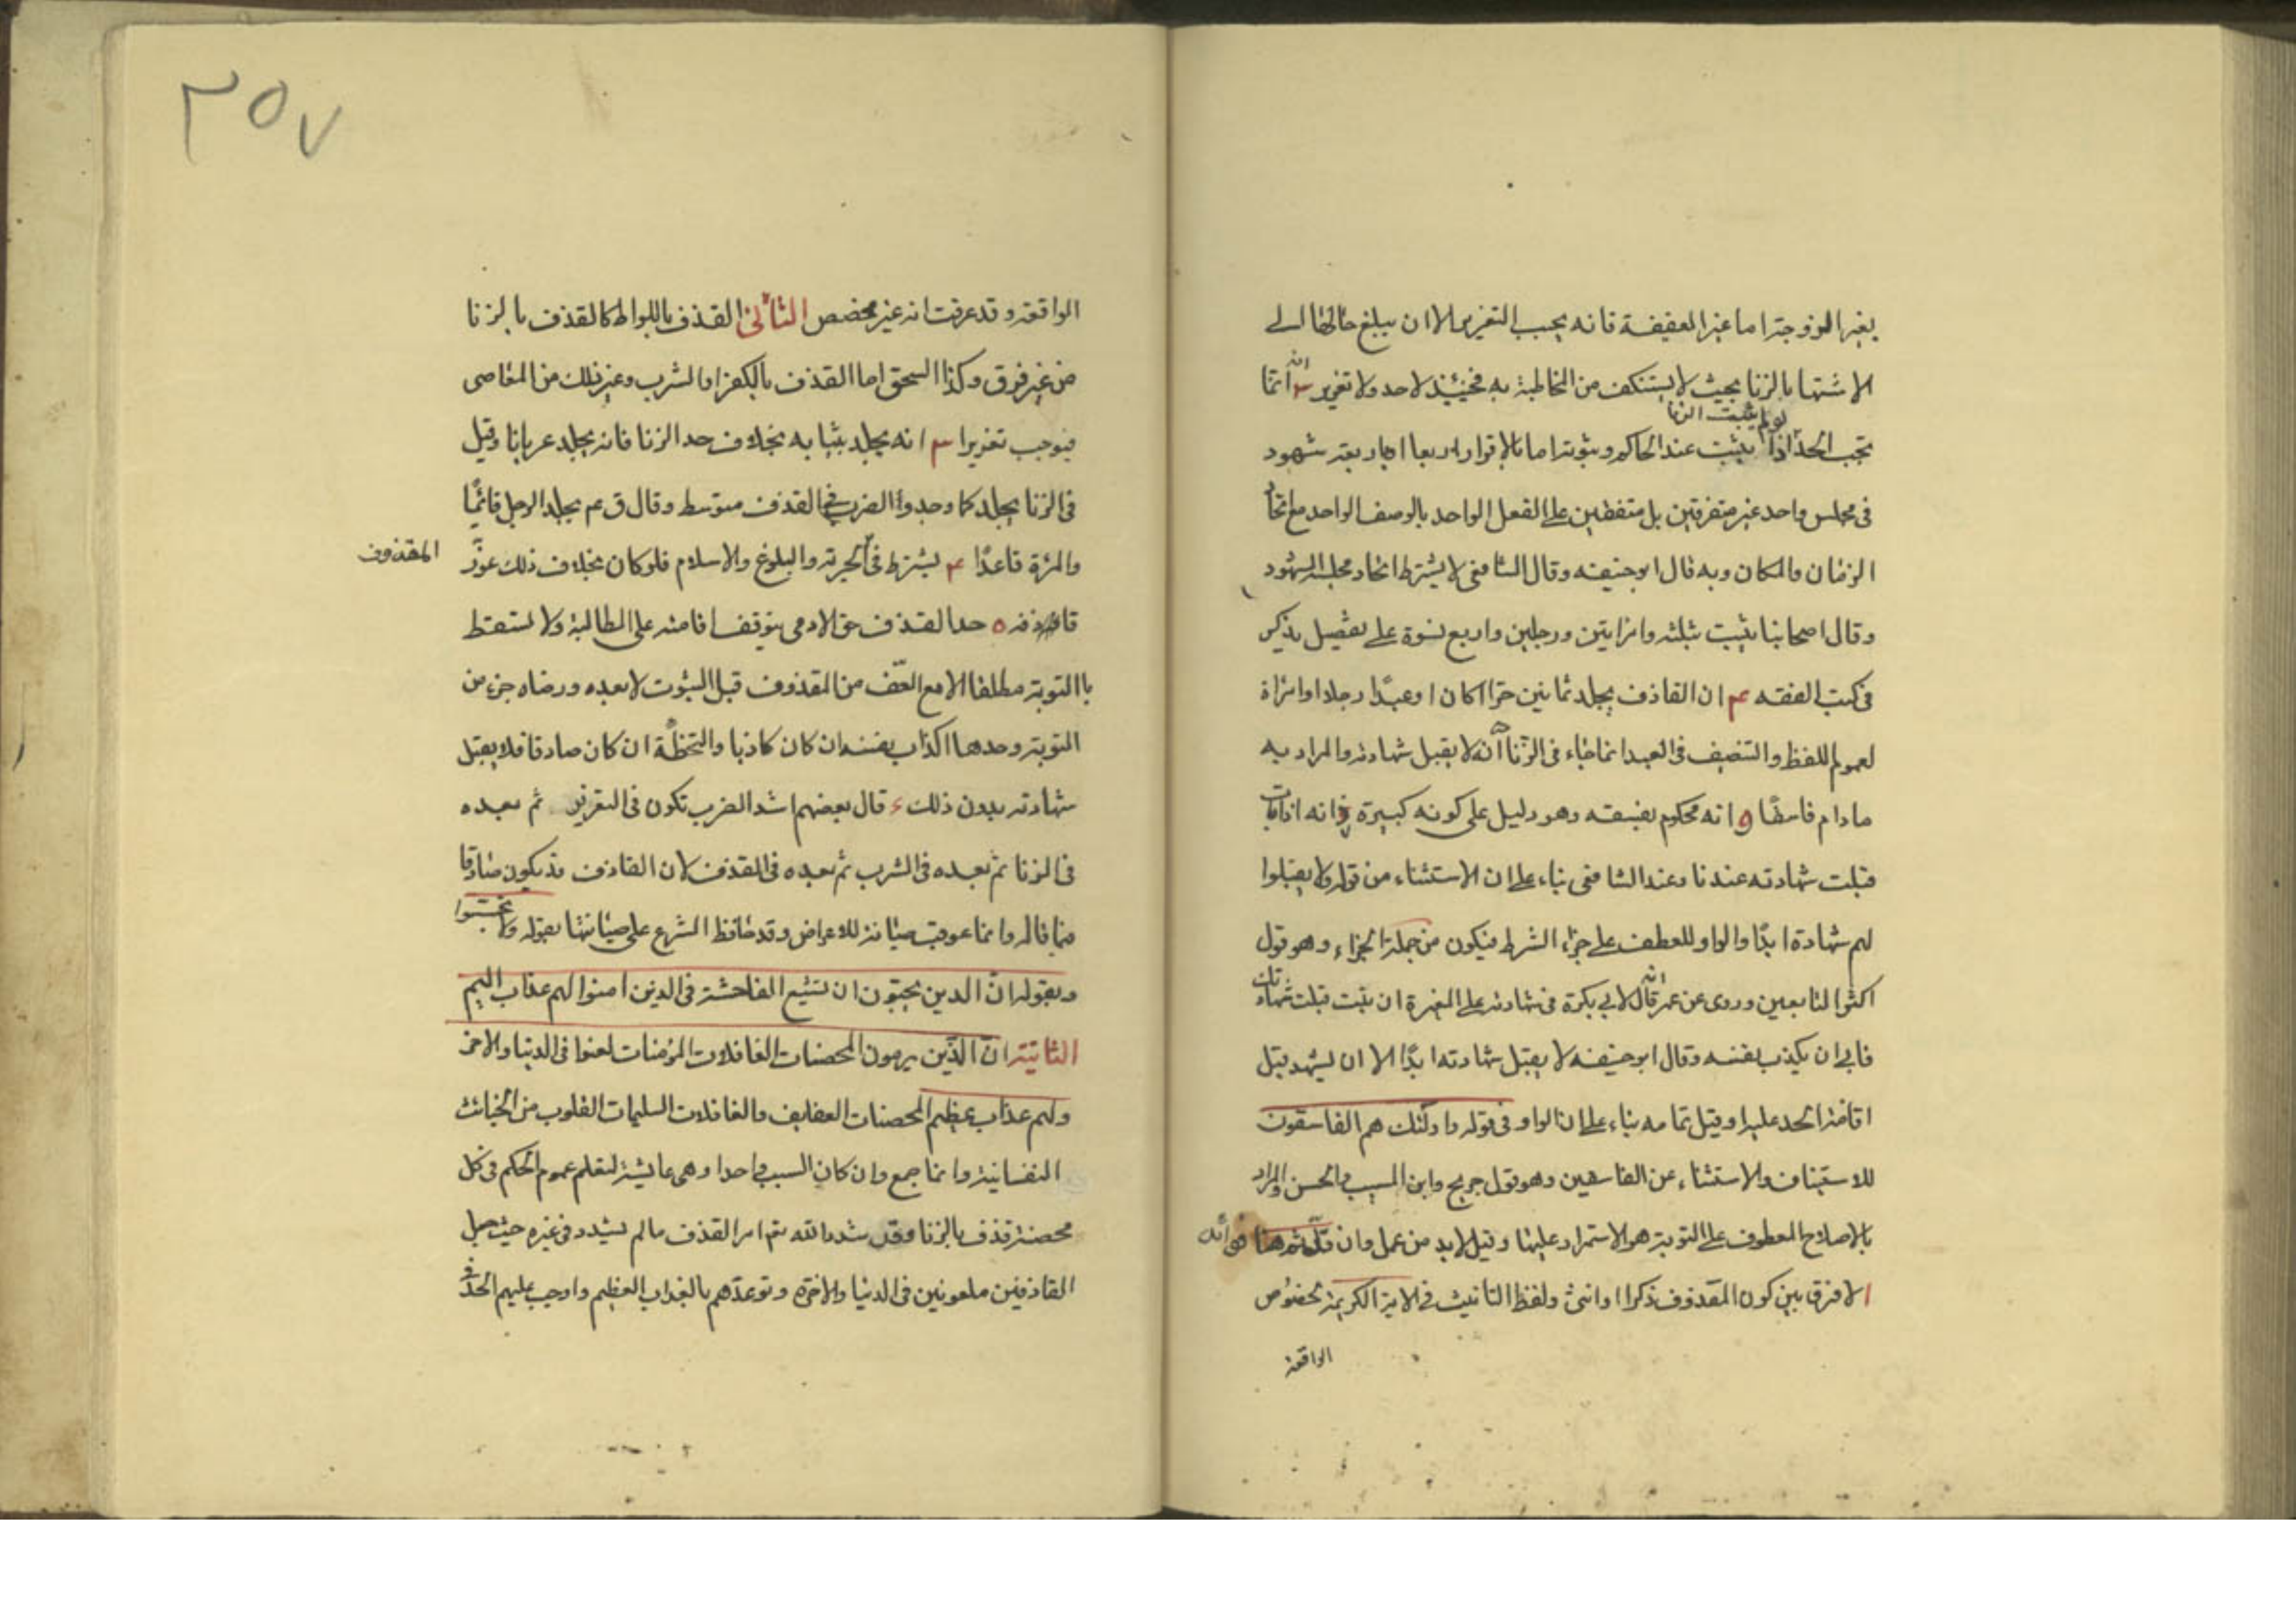 بغير الزوجة اما غير العفيفة فانه يجب التعزير الا ان يبلغ حالها الى
الاشتهار بالزنا بحيث لا يستنكف من المخاطبة به فحينئذ لاحد ولا تعزير ٣ انه انما
يجب الحد اذا لم يثبت الزنا يثبت عند الحاكم وثبوته اما بالاقرار اربعا او اربعة شهود
فى مجلس واحد غير متفرقين بل متفقين على الفعل الواحد بالوصف الواحد مع اتحاد
الزمان والمكان وبه قال ابوحنيفه وقال الشافعى لا يشترط اتحاد مجلس الشهود
وقال اصحابنا يثبت بثلثه وامراتين ورجلين واربع نسوة على تفصيل يذكر
فى كتب الفقه ۴ ان القاذف يجلد ثمانين حرا كان او عبدًا رجلا او امراة
لعموم اللفظ والتنصيف فى العبد انما جاء فى الزنا ه انه لا يقبل شهادته والمراد به
مادام فاسقًا و انه محكوم بفسقه وهو دليل على كونه كبيرة ز انه اذا تاب
قبلت شهادته عندنا وعند الشافعى بناء على ان الاستثناء من قوله ولا يقبلوا
لهم شهادة ابدًا والواو للعطف على جزاء الشرط فيكون من جملة الجزاء وهو قول
اكثر التابعين وروى عن عمر انه قال لابى بكرة فى شهادته على المغيرة ان تبت قبلت شهادتك
فابى ان يكذب نفسه وقال ابوحنيفه لا يقبل شهادته ابدًا الا ان يشهد قبل
اقامة الحد عليه او قبل تمامه بناء على ان الواو فى قوله واولئك هم الفاسقون
للاستيناف والاستثناء عن الفاسقين وهو قول جريح وابن المسيب والحسن والمراد
بالاصلاح المعطوف على التوبة هو الاستمرار عليها وقيل لابد من عمل وان قل ثم هنا فوائد
ا لا فرق بين كون المقذوف ذكرا او انثى ولفظ التانيث فى الاية الكريمة لخصوص
الواقعة
٢٥٧
الواقعة وقد عرفت انه غير مخصص الثانى القذف باللواط كالقذف بالزنا
من غير فرق وكذا السحق اما القذف بالكفر او الشرب وغير ذلك من المعاصى
فيوجب تعزيرا ٣ انه يجلد بثيابه بخلاف حد الزنا فانه يجلد عريانا وقيل
فى الزنا يجلد كما وجد واالضرب فى القذف متوسط وقال ق ع م يجلد الرجل قائمًا
والمرئة قاعدًا ۴ يشترط فى الحرية والبلوغ والاسلام فلو كان بخلاف ذلك عزر
المقذوف
قاذفه ٥ حد القذف حق الادمى يتوقف اقامته على المطالبة ولا تسقط
باالتوبة مطلقا الا مع العفو من المقذوف قبل الثبوت لا بعده ورضاه جزء من
التوبة وحدها اكذاب نفسه ان كان كاذبا والتخطئة ان كان صادقا فلا يقبل
شهادته بدون ذلك ء قال بعضهم اشد الضرب تكون فى التعزير ثم بعده
فى الزنا ثم بعده فى الشرب ثم بعده فى القذف لان القاذف قد يكون صادقا
فيما قاله وانما عوقب صيانة للاعراض وقد حافظ الشرع على صيانتها بقوله ولا تجسسوا
وبقوله ان الذين يحبون ان تشيع الفاحشة فى الذين امنوا لهم عذاب اليم
الثانية ان الذين يرمون المحصنات الغافلات المؤمنات لعنوا فى الدنيا والاخرة
ولهم عذاب عظيم المحصنات العفايف والغافلات السليمات القلوب من الخبائث
النفسانية وانما جمع وان كان السبب واحدا وهى عايشة لتعلم عموم الحكم فى كل
محصنة قذف بالزنا وقد شدد الله تع امر القذف ما لم يشدد فى غيره حيث جعل
القاذفين ملعونين فى الدنيا والاخرة وتوعدهم بالعذاب العظيم واوجب عليهم الحد فى